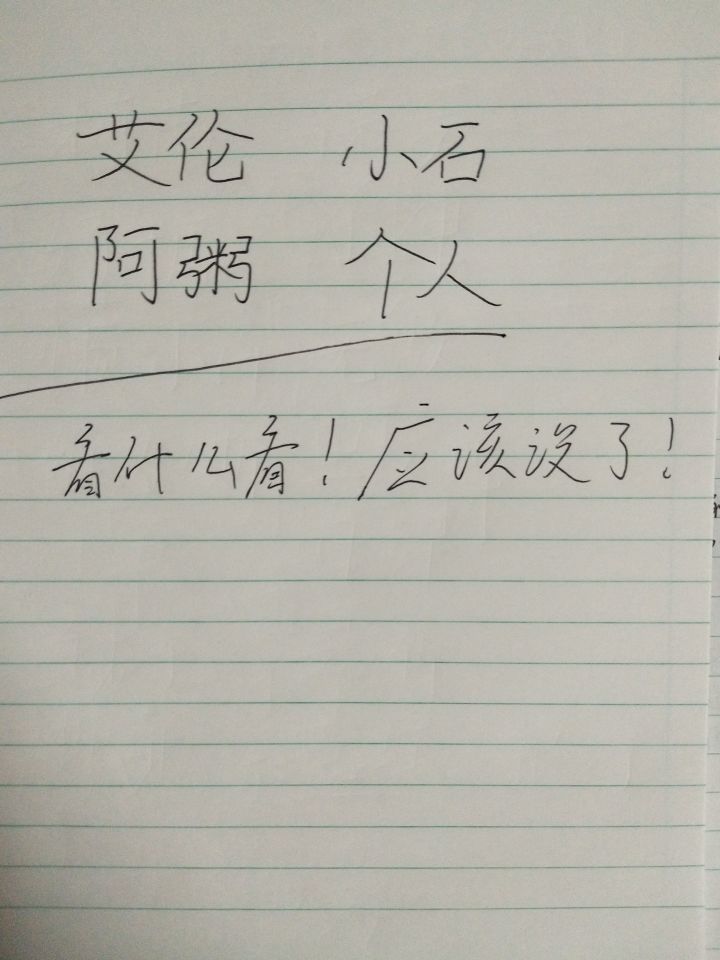 艾伦 小石
阿粥 个人
看什么看！应该没了！